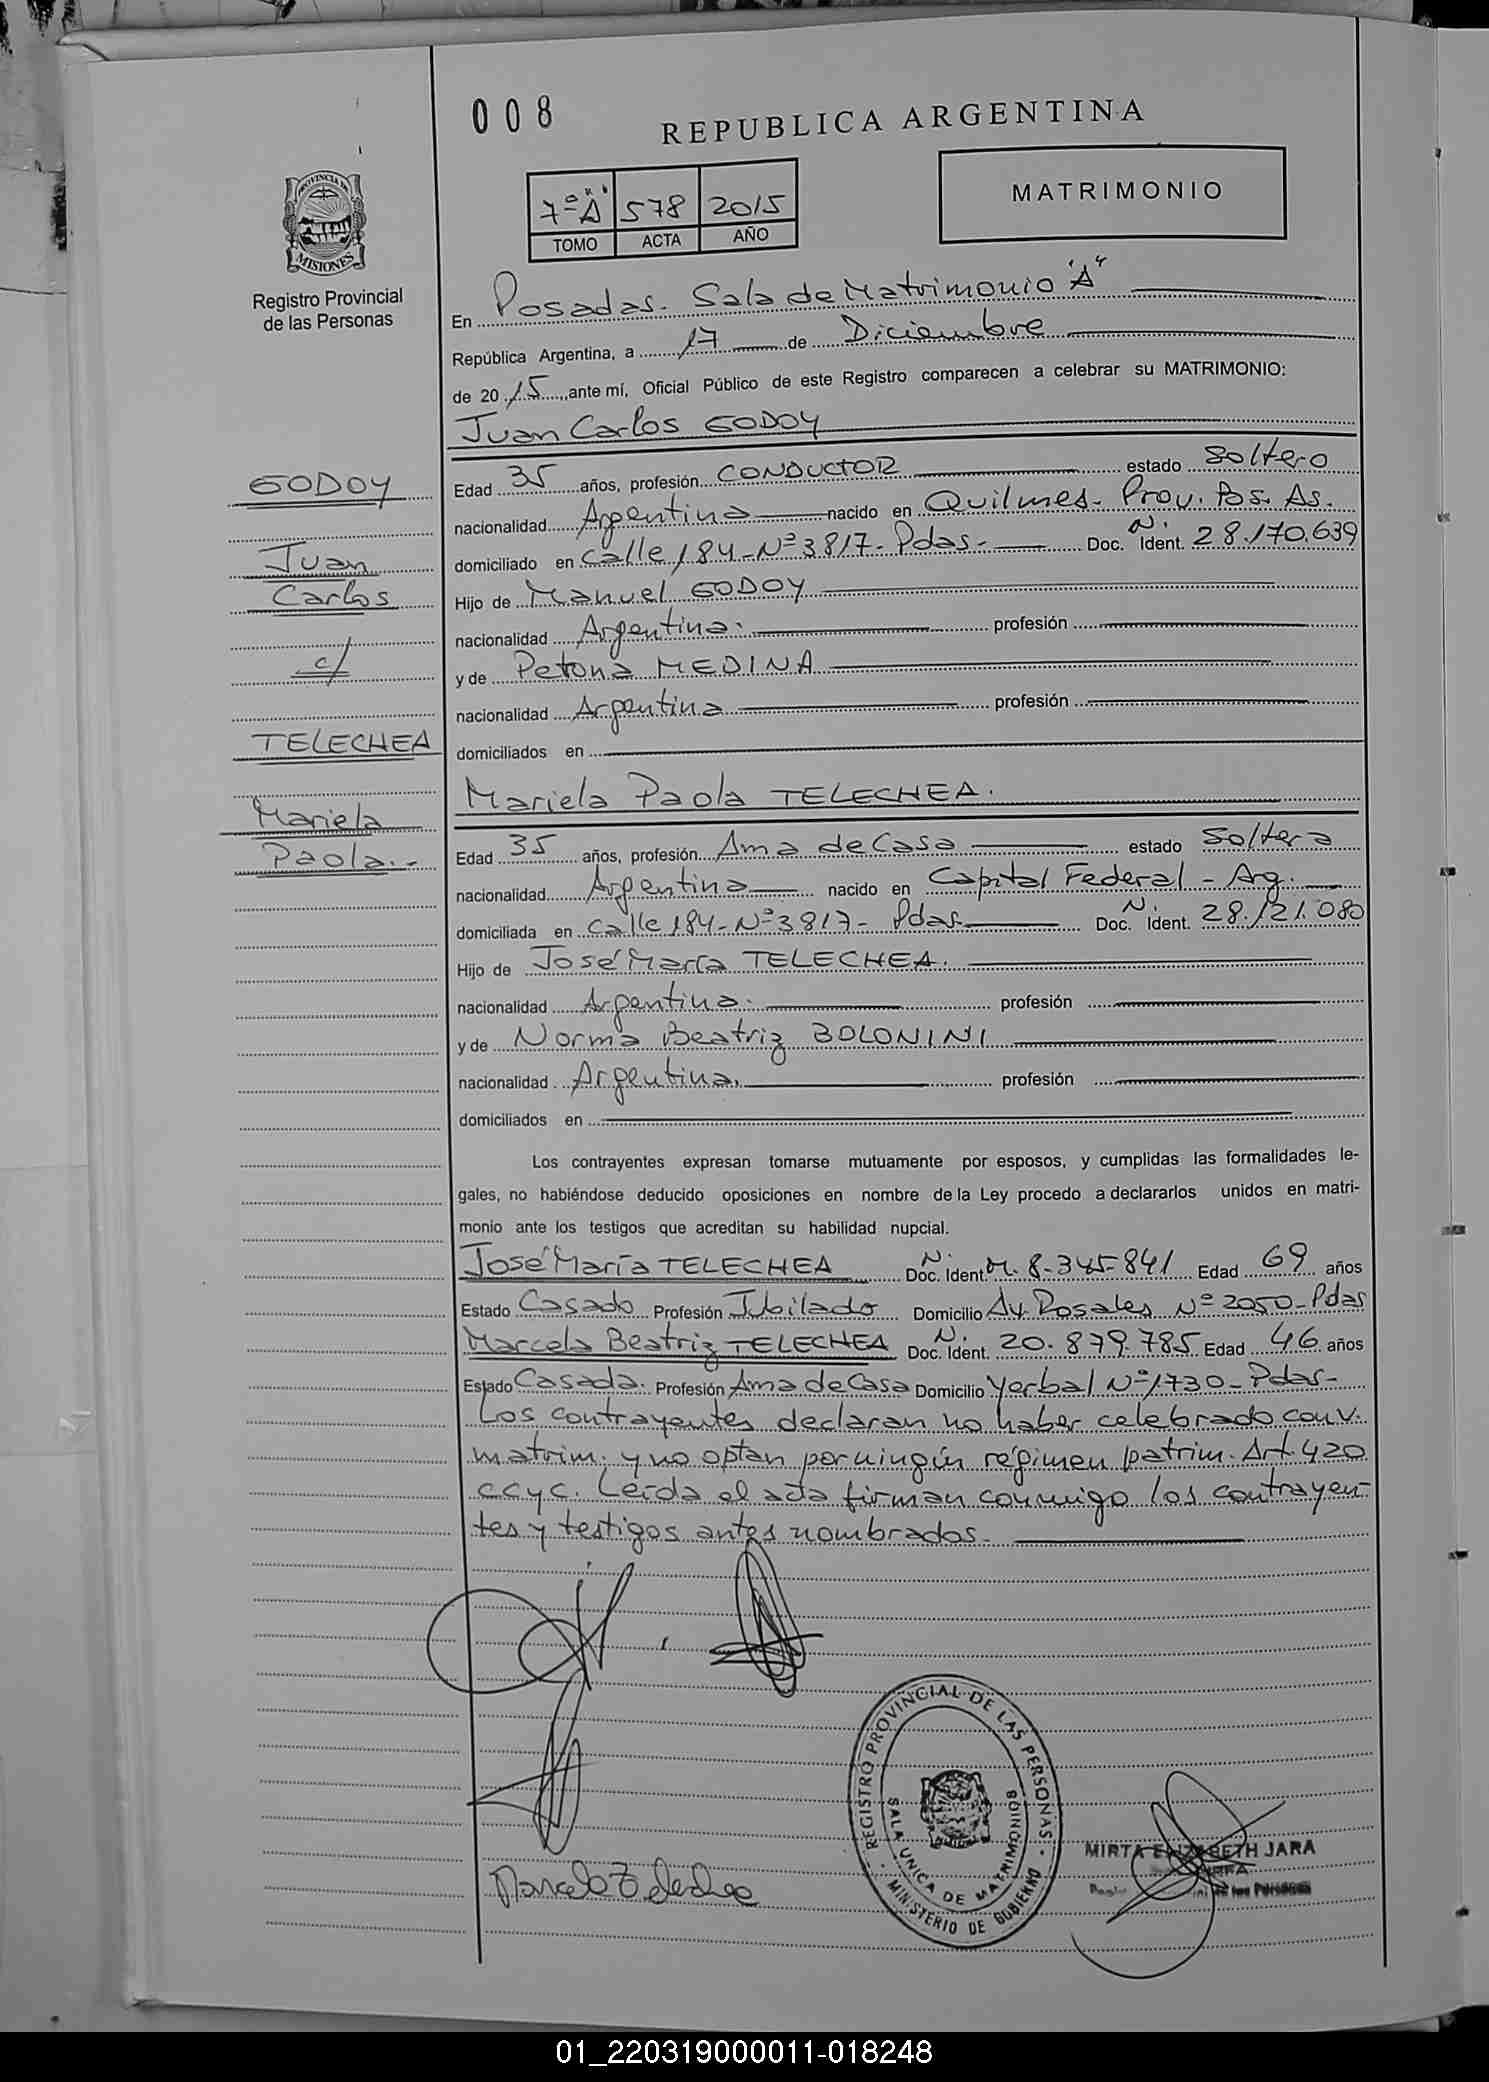 008
REPUBLICA ARGENTINA
MATRIMONIO
7º "A" 578 2015
TOMO ACTA AÑO
PROVINCIA DE
MISIONES
Registro Provincial
de las Personas
En Posadas. Sala de Matrimonio "A"
República Argentina, a 17 de Diciembre
de 2015, ante mí, Oficial Público de este Registro comparecen a celebrar su MATRIMONIO:
Juan Carlos GODOY
GODOY
Juan
Carlos
c/
TELECHEA
Mariela
Paola.-
Edad 35 años, profesión CONDUCTOR estado Soltero
nacionalidad Argentina nacido en Quilmes- Prov. Bs. As.
domiciliado en Calle 184-Nº 3817- Pdas- Doc. N. Ident. 28.170.639
Hijo de Manuel GODOY
nacionalidad Argentina. profesión
y de Petona MEDINA
nacionalidad Argentina profesión
domiciliados en
Mariela Paola TELECHEA.
Edad 35 años, profesión Ama de Casa estado Soltera
nacionalidad Argentina nacido en Capital Federal - Arg.
domiciliada en Calle 184-Nº 3817- Pdas- Doc. N. Ident. 28.121.080
Hijo de José María TELECHEA.
nacionalidad Argentina. profesión
y de Norma Beatriz BOLONINI
nacionalidad Argentina. profesión
domiciliados en
Los contrayentes expresan tomarse mutuamente por esposos, y cumplidas las formalidades le-
gales, no habiéndose deducido oposiciones en nombre de la Ley procedo a declararlos unidos en matri-
monio ante los testigos que acreditan su habilidad nupcial.
José María TELECHEA Doc. N. Ident. M. 8-345-841 Edad 69 años
Estado Casado Profesión Jubilado Domicilio Av. Rosales Nº 2050-Pdas
Marcela Beatriz TELECHEA Doc. N. Ident. 20.879.785 Edad 46 años
Estado Casada. Profesión Ama de Casa Domicilio Yerbal Nº 1730- Pdas-
Los contrayentes declaran no haber celebrado conv.
matrim. y no optan por ningún régimen patrim. Art. 420
ccyc. Leída el acta firman conmigo los contrayen-
tes y testigos antes nombrados.
REGISTRO PROVINCIAL DE LAS PERSONAS
SALA UNICA DE MATRIMONIOS
MINISTERIO DE GOBIERNO
Marcela Telechea
MIRTA ELIZABETH JARA
de las Personas
01_220319000011-018248